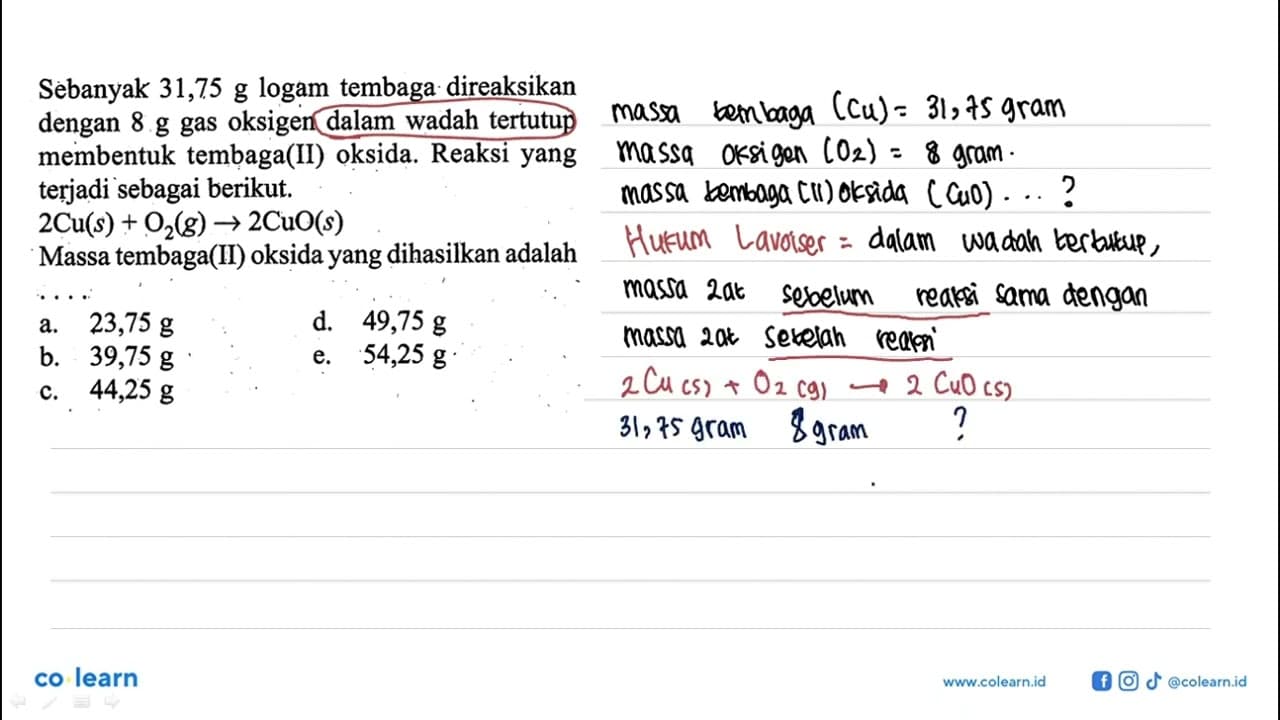 Sebanyak 31,75 g logam tembaga direaksikan
dengan 8 g gas oksigen dalam wadah tertutup
membentuk tembaga(II) oksida. Reaksi yang
terjadi sebagai berikut.
2Cu(s) + O₂(g) → 2CuO(s)
Massa tembaga(II) oksida yang dihasilkan adalah
. . . .
a. 23,75 g
b. 39,75 g
c. 44,25 g
d. 49,75 g
e. 54,25 g
massa tembaga (Cu) = 31,75 gram
massa oksigen (O2) = 8 gram.
massa tembaga (II) oksida (CuO) . ... ?
Hukum Lavoiser = dalam wadah tertutup,
massa zat sebelum reaksi sama dengan
massa zat setelah reaksi
2 Cu (s) + O2 (g) → 2 CuO (s)
31,75 gram 8 gram ?
co learn
www.colearn.id
@colearn.id